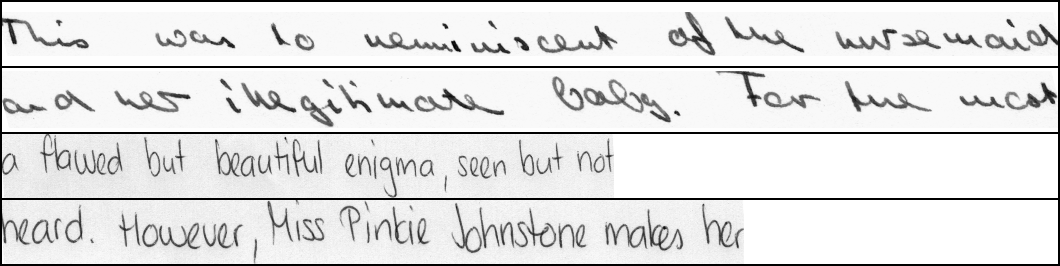 This was so reminiscent of the nursemaid
and her illegitimate baby. For the most
a flawed but beautiful enigma, seen but not
heard. However, Miss Pinkie Johnstone makes her